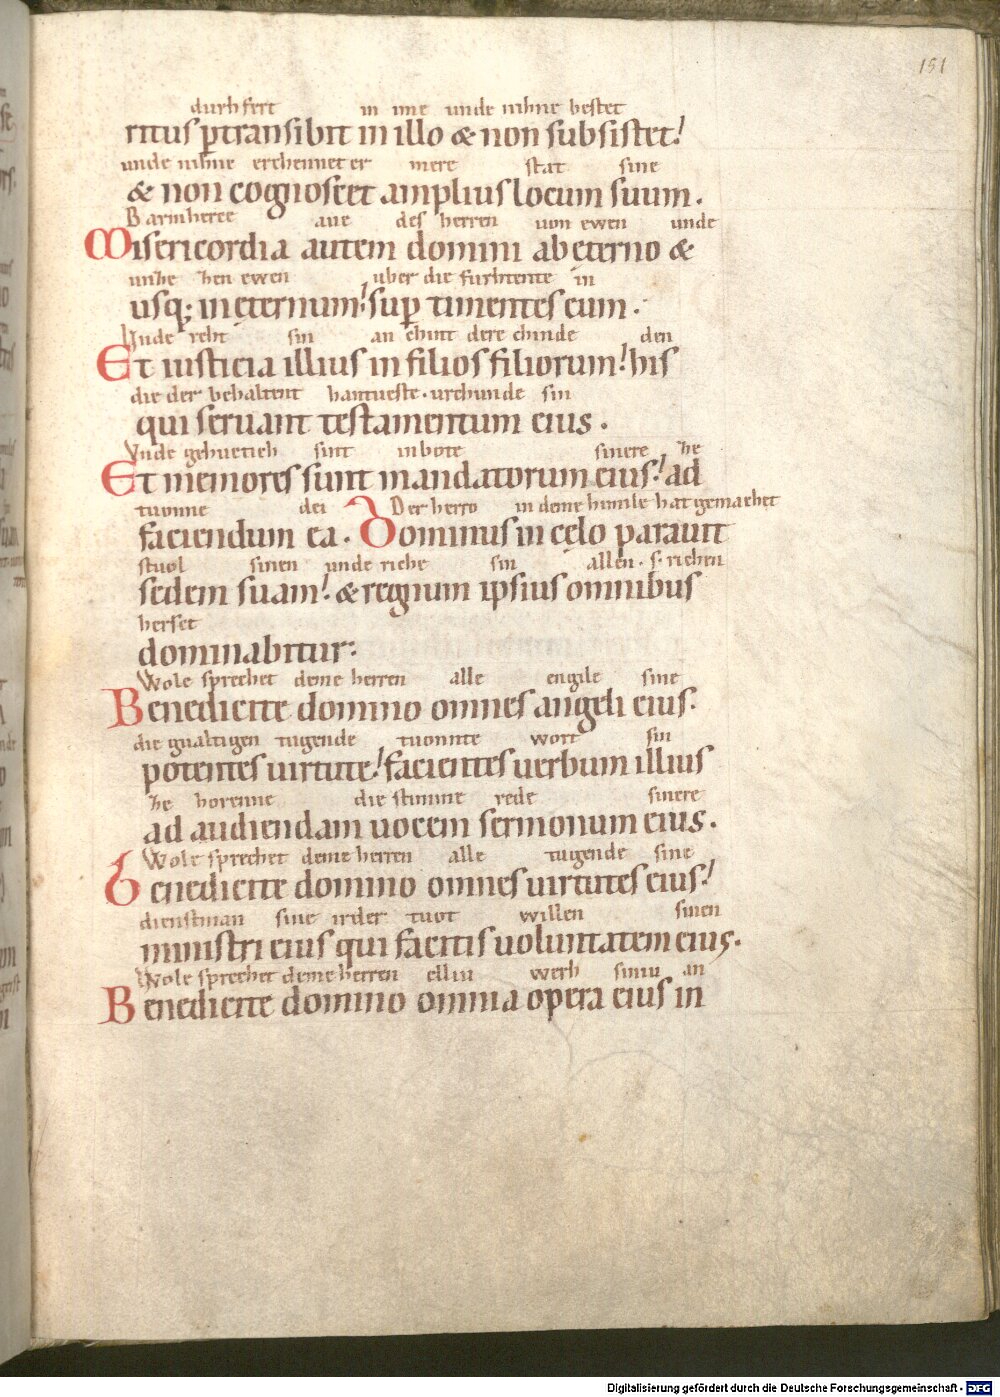 151
durhfert in ime unde nihne bestet
ritus ptransibit in illo & non subsistet!
unde nihne erchennet er mere stat sine
& non cognoscet amplius locum suum.
Barmherce aue des herren uon ewen unde
Misericordia autem domini ab eterno &
unhe hen ewen uber die furhtente in
usq; in eternum! sup timentes eum.
Unde reht sin an chint dere chinde den
Et iusticia illius in filios filiorum! his
die der behaltent hantueste. urchunde sin
qui seruant testamentum eius.
Unde gehuctich sint inbote sinere he
Et memores sunt mandatorum eius! ad
tuonne dei Der herro in deme himile hat gemachet
faciendum ea. Dominus in celo parauit
stuol sinen unde riche sin allen. s. richen
sedem suam! & regnum ipsius omnibus
herset
dominabitur:
Wole sprechet deme herren alle engile sine
Benedicite domino omnes angeli eius.
die gualtigen tugende tuonnte wort sin
potentes uirtute! facientes uerbum illius
he horenne die stimme rede sinere
ad audiendam uocem sermonum eius.
Wole sprechet deme herren alle tugende sine
Benedicite domino omnes uirtutes eius!
dienstman sine irder tuot willen sinen
ministri eius qui facitis uoluntatem eius.
Wole sprechet deme herren elliu werh siniu an
Benedicite domino omnia opera eius in
Digitalisierung gefördert durch die Deutsche Forschungsgemeinschaft - DFG